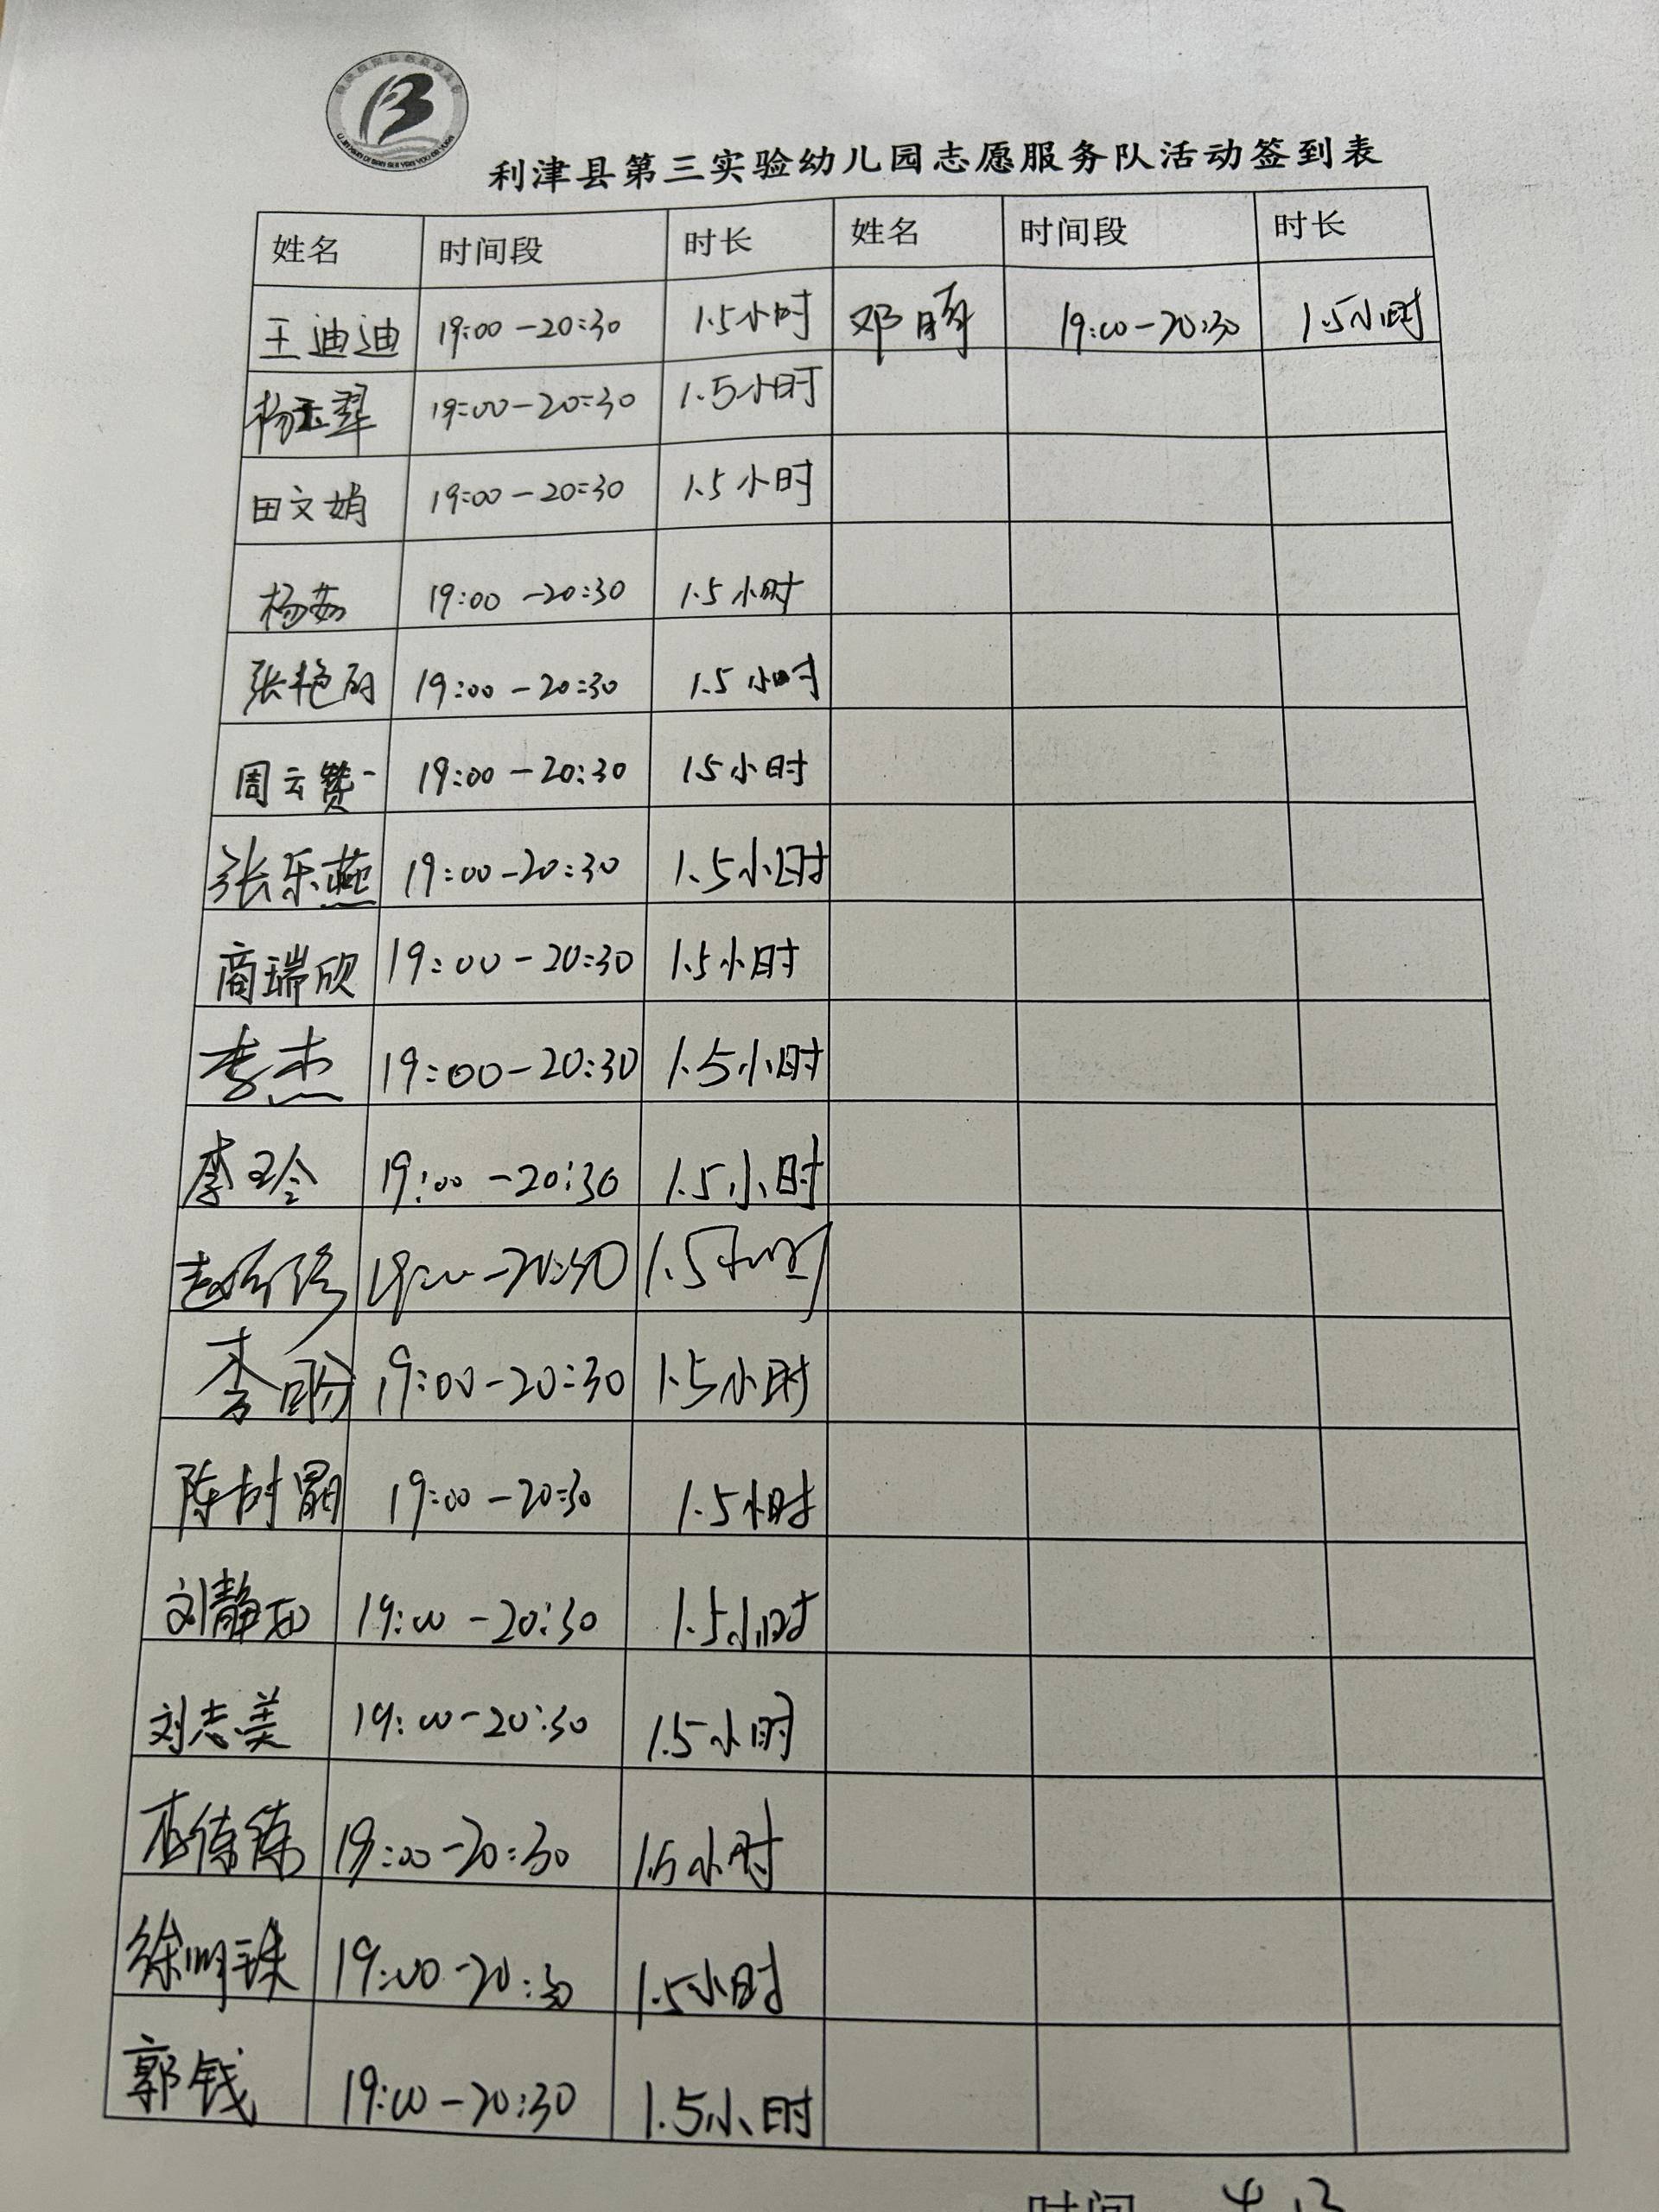 利津县第三实验幼儿园志愿服务队活动签到表
姓名 时间段 时长 姓名 时间段 时长
王迪迪 19:00-20:30 1.5小时 邓 19:00-20:30 1.5小时
杨玉翠 19:00-20:30 1.5小时
田文娟 19:00-20:30 1.5小时
杨茹 19:00-20:30 1.5小时
张艳丽 19:00-20:30 1.5小时
周云赞 19:00-20:30 1.5小时
张乐燕 19:00-20:30 1.5小时
商瑞欣 19:00-20:30 1.5小时
李杰 19:00-20:30 1.5小时
李玲 19:00-20:30 1.5小时
19:00-20:30 1.5小时
李盼 19:00-20:30 1.5小时
陈树 19:00-20:30 1.5小时
刘静 19:00-20:30 1.5小时
刘志美 19:00-20:30 1.5小时
19:00-20:30 1.5小时
徐明珠 19:00-20:30 1.5小时
郭钱 19:00-20:30 1.5小时
时间